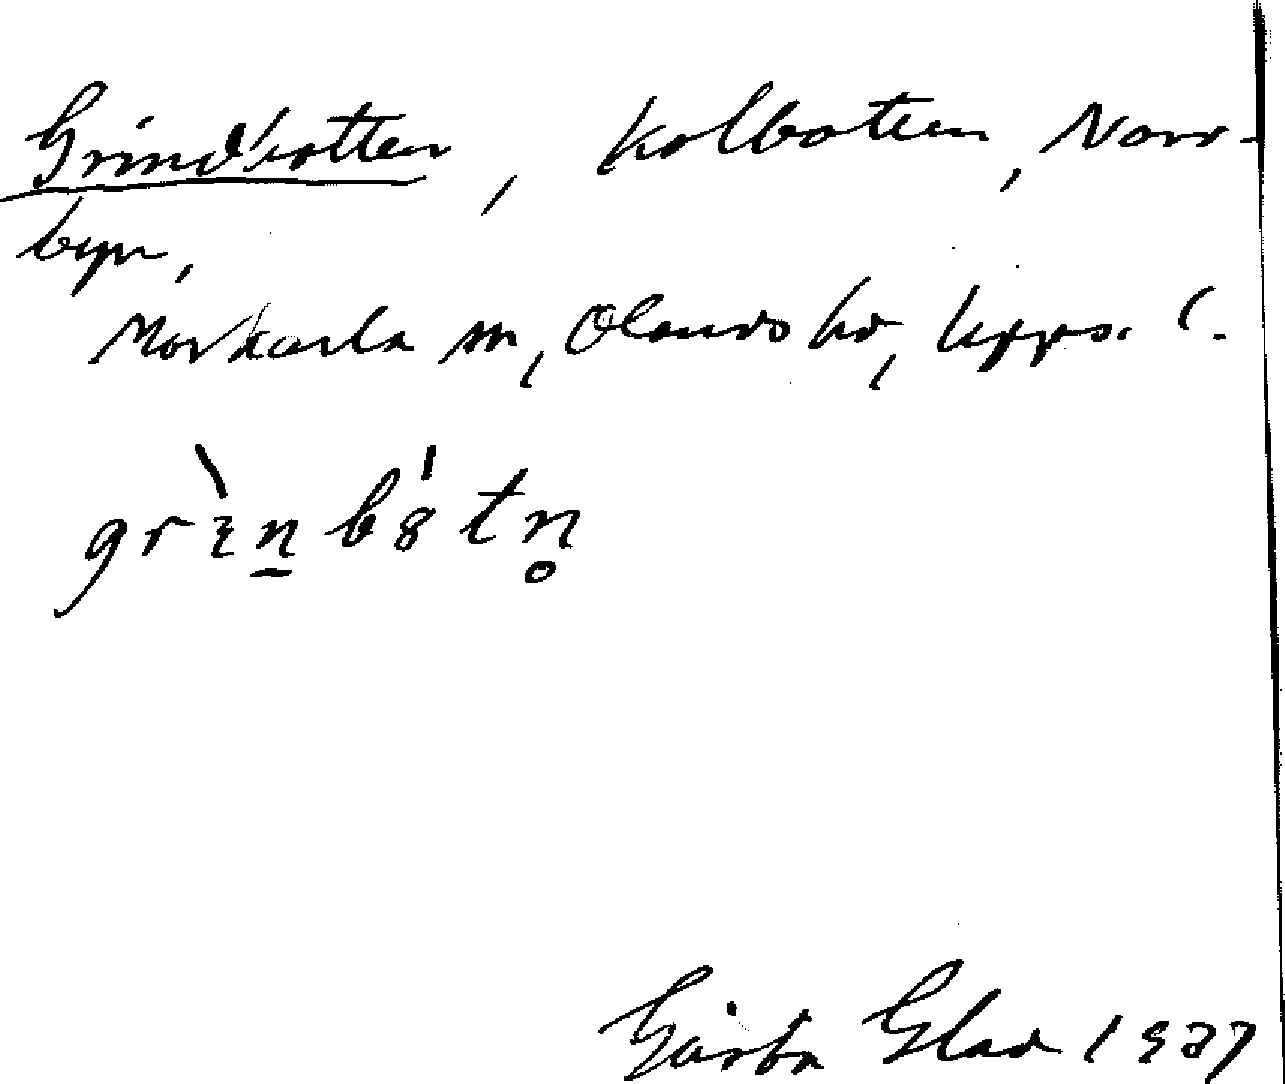 Grindbotten, kolbotten, Norr-
byn,
Morkarla sn, Olands hd, Upps. l.
Gösta Glad 1937